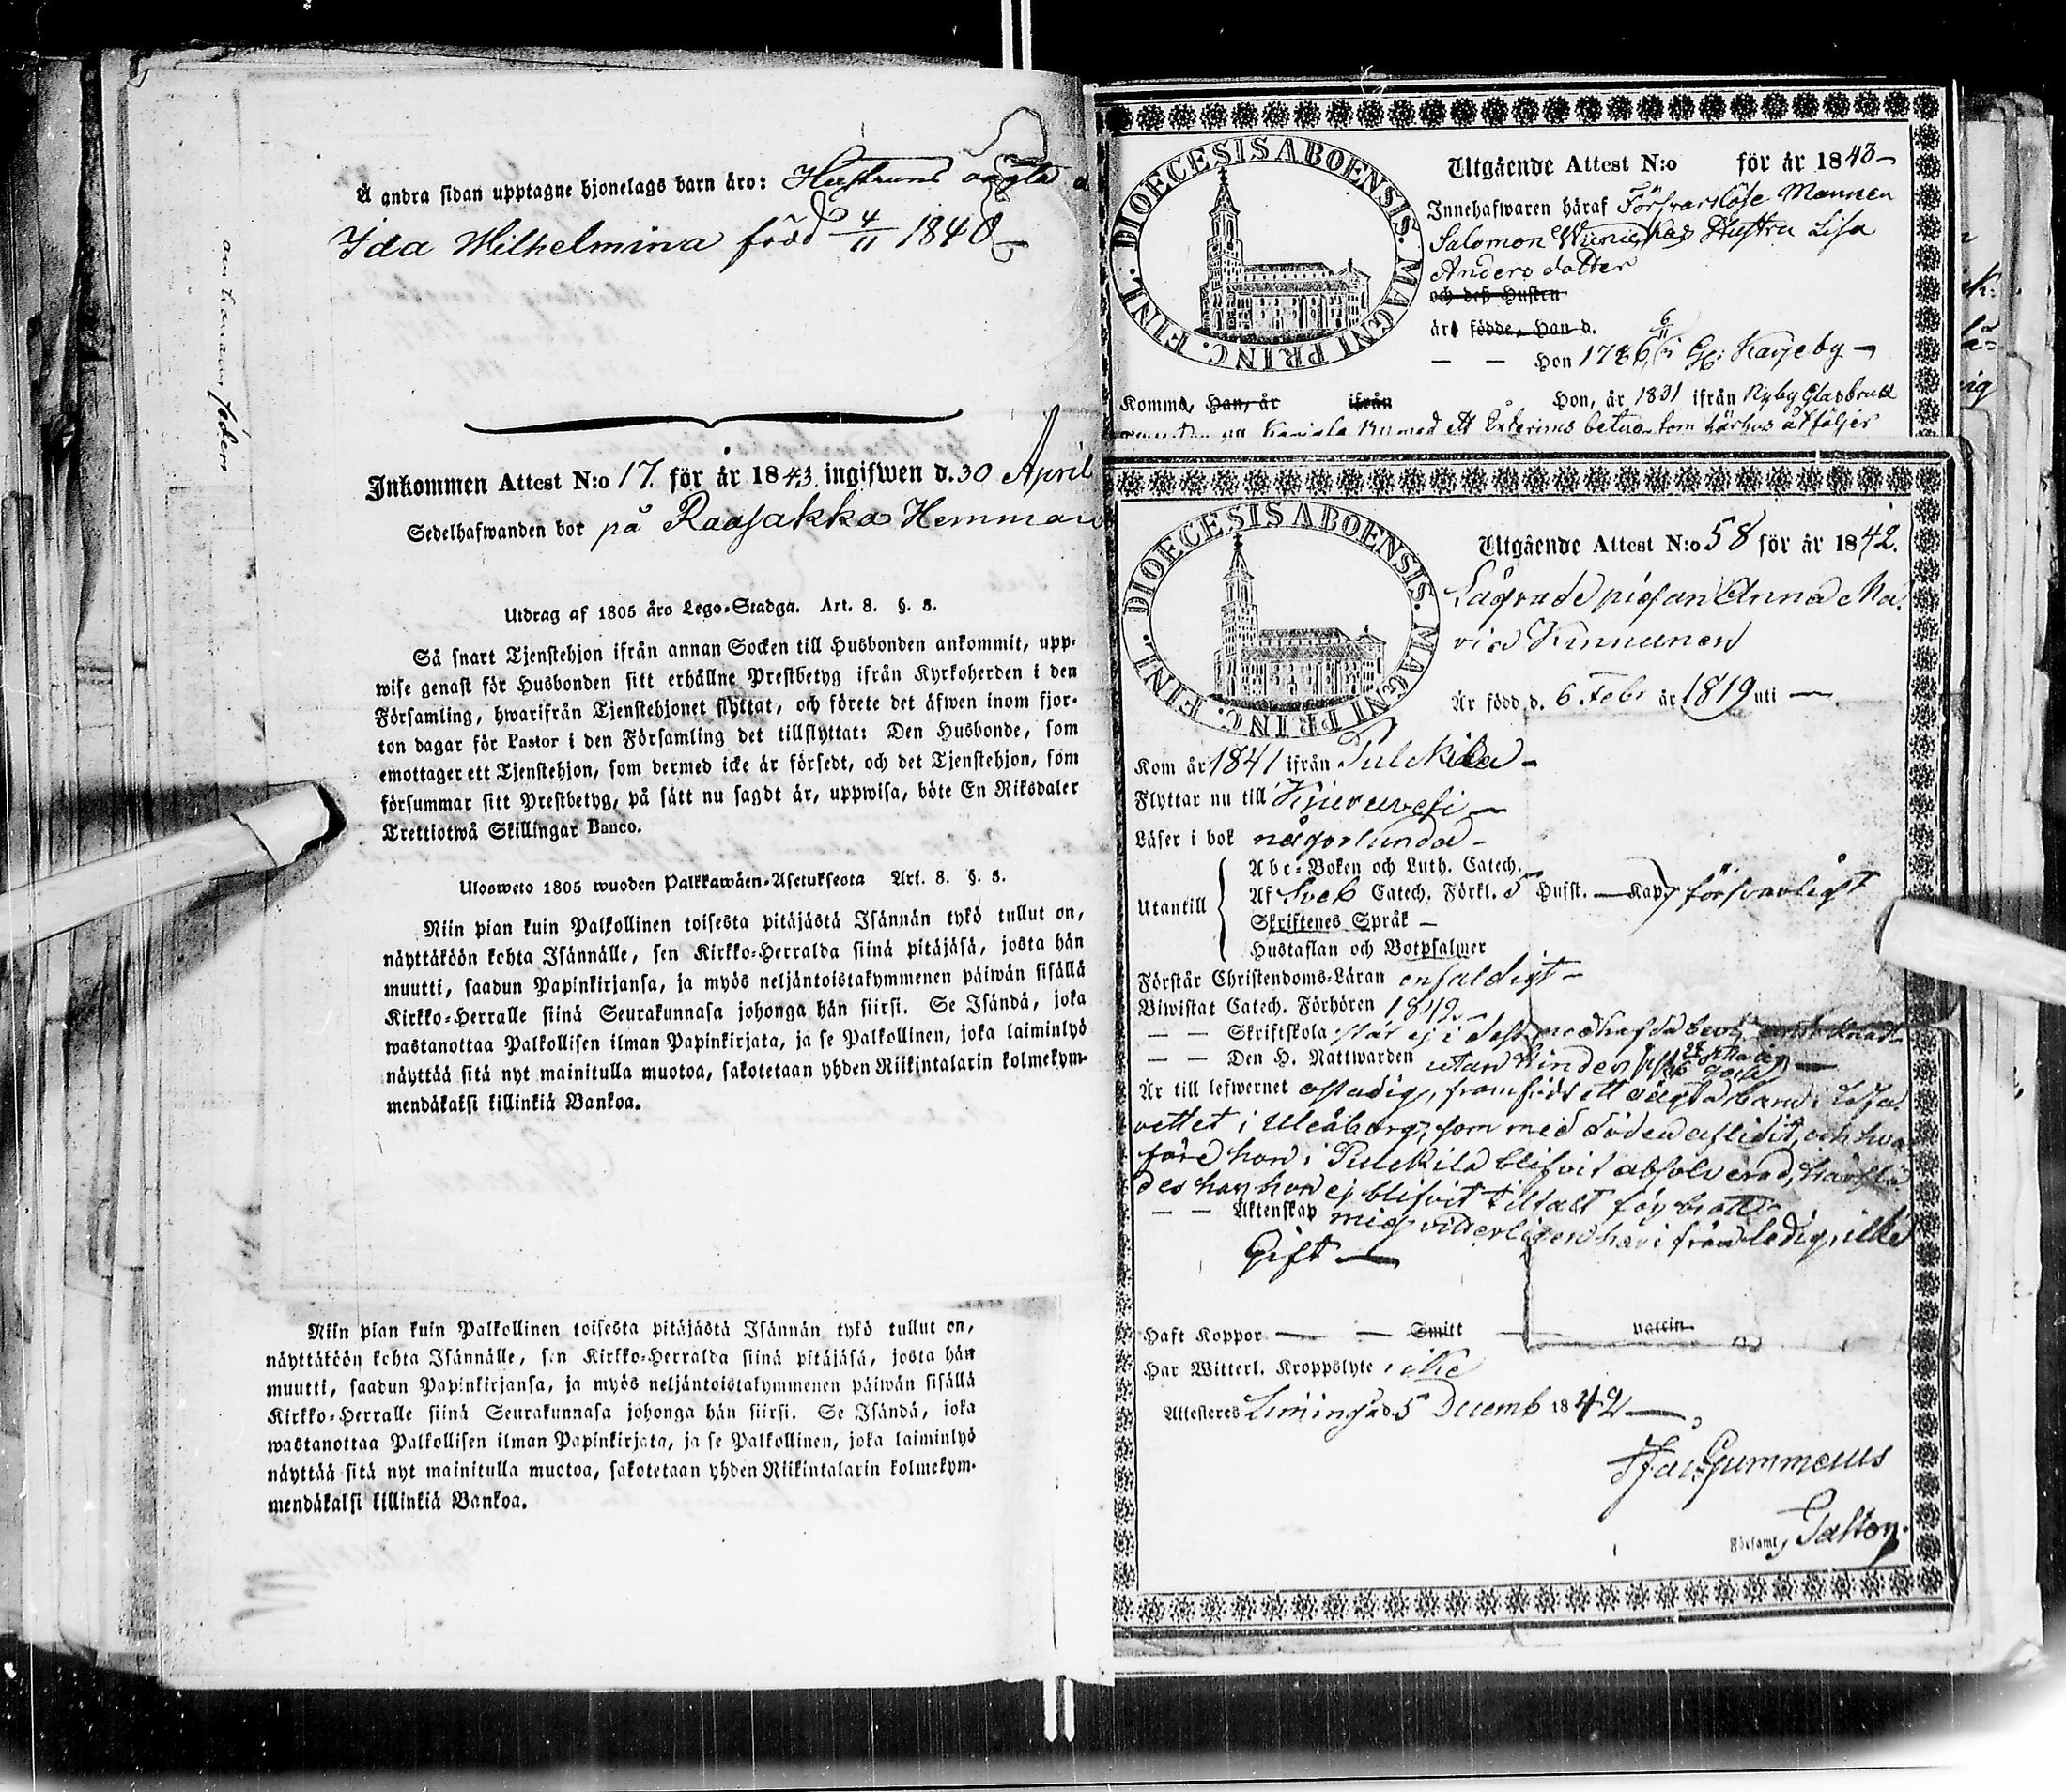 Å andra sidan upptagne hjonelags barn äro: Hustruns oägta
Ida Wilhelmina född 4/11 1840 –
Inkommen Attest N:o 17. för år 1843 ingifwen d. 30 April
Sedelhafwanden bor på Raasakka Hemman
Utdrag af 1805 års Lego-Stadga. Art. 8. §. 8.
Så snart Tjenstehjon ifrån annan Socken till Husbonden ankommit, upp-
wise genast för Husbonden sitt erhållne Prestbetyg ifrån Kyrkoherden i den
Församling, hwarifrån Tjenstehjonet flyttat, och förete det äfwen inom fjor-
ton dagar för Pastor i den Församling det tillflyttat: Den Husbonde, som
emottager ett Tjenstehjon, som dermed icke är försedt, och det Tjenstehjon, som
försummar sitt Prestbetyg, på sätt nu sagdt är, uppwisa, böte En Riksdaler
Trettiotwå Skillingar Banco.
Ulosweto 1805 wuoden Palkkawäen-Asetuksesta Art. 8. §. 8.
Niin pian kuin Palkollinen toisesta pitäjästä Isännän tykö tullut on,
näyttäköön kohta Isännälle, sen Kirkko-Herralda siinä pitäjäsä, josta hän
muutti, saadun Papinkirjansa, ja myös neljäntoistakymmenen päiwän sisällä
Kirkko-Herralle siinä Seurakunnasa johonga hän siirsi. Se Isändä, joka
wastanottaa Palkollisen ilman Papinkirjata, ja se Palkollinen, joka laiminlyö
näyttää sitä nyt mainitulla muotoa, sakotetaan yhden Riikintalarin kolmekym-
mendäkaksi killinkiä Bankoa.
Niin pian kuin Palkollinen toisesta pitäjästä Isännän tykö tullut on,
näyttäköön kohta Isännälle, sen Kirkko-Herralda siinä pitäjäsä, josta hän
muutti, saadun Papinkirjansa, ja myös neljäntoistakymmenen päiwän sisällä
Kirkko-Herralle siinä Seurakunnasa johonga hän siirsi. Se Isändä, joka
wastanottaa Palkollisen ilman Papinkirjata, ja se Palkollinen, joka laiminlyö
näyttää sitä nyt mainitulla muotoa, sakotetaan yhden Riikintalarin kolmekym-
mendäkaksi killinkiä Bankoa.
DIOECESIS ABOENSIS. MAGNI PRINC. FINL.
Utgående Attest N:o för år 1843 –
Innehafwaren häraf Försvarslöse Mannen
Salomon Hustru Lisa
Anders dotter
och deß Hustru
är födde, Han d.
– – Hon 1786 6/11 i Karjeby –
Komma, Han, år ifrån Hon, år 1831 ifrån Nyby Glasbruk
med ett Interims betyg som härhos åtföljer
DIOECESIS ABOENSIS. MAGNI PRINC. FINL.
Utgående Attest N:o 58 för år 1842.
Lägrade pigan Anna Ma-
ria Kinnunen
Är född d. 6 Febr år 1819 uti –
Kom år 1841 ifrån Pulckila –
Flyttar nu till Kiuruvesi –
Läser i bok någorlunda –
Utantill
Abc-Boken och Luth. Catech.
Af Sveb Catech. Förkl. 5 Husst. – Kap försvarligt
Skriftenes Språk –
Hustaflan och Botpsalmer
Förstår Christendoms-Läran enfaldigt –
Biwistat Catech. Förhören 1842 –
– – Skriftskola står ej i dess medhafda bevis
– – Den H. Nattwarden utan hinder
Är till lefwernet ostadig, framfödt ett oägta barn i Lasa-
rettet i Uleåborg, som med döden aflidit, och hvar-
före hon i Pulckila blifvit absolverad, härstä-
des har hon ej blifvit tilltalt för brott –
– – Äktenskap mig vitterligen härifrån ledig, icke
Gift –
Haft Koppor – – Smitt – vaccin
Har Witterl. Kroppslyte icke
Attesteres Limingo d. 5 Decemb 1842 –
Gummerus
Församl. Pastor.